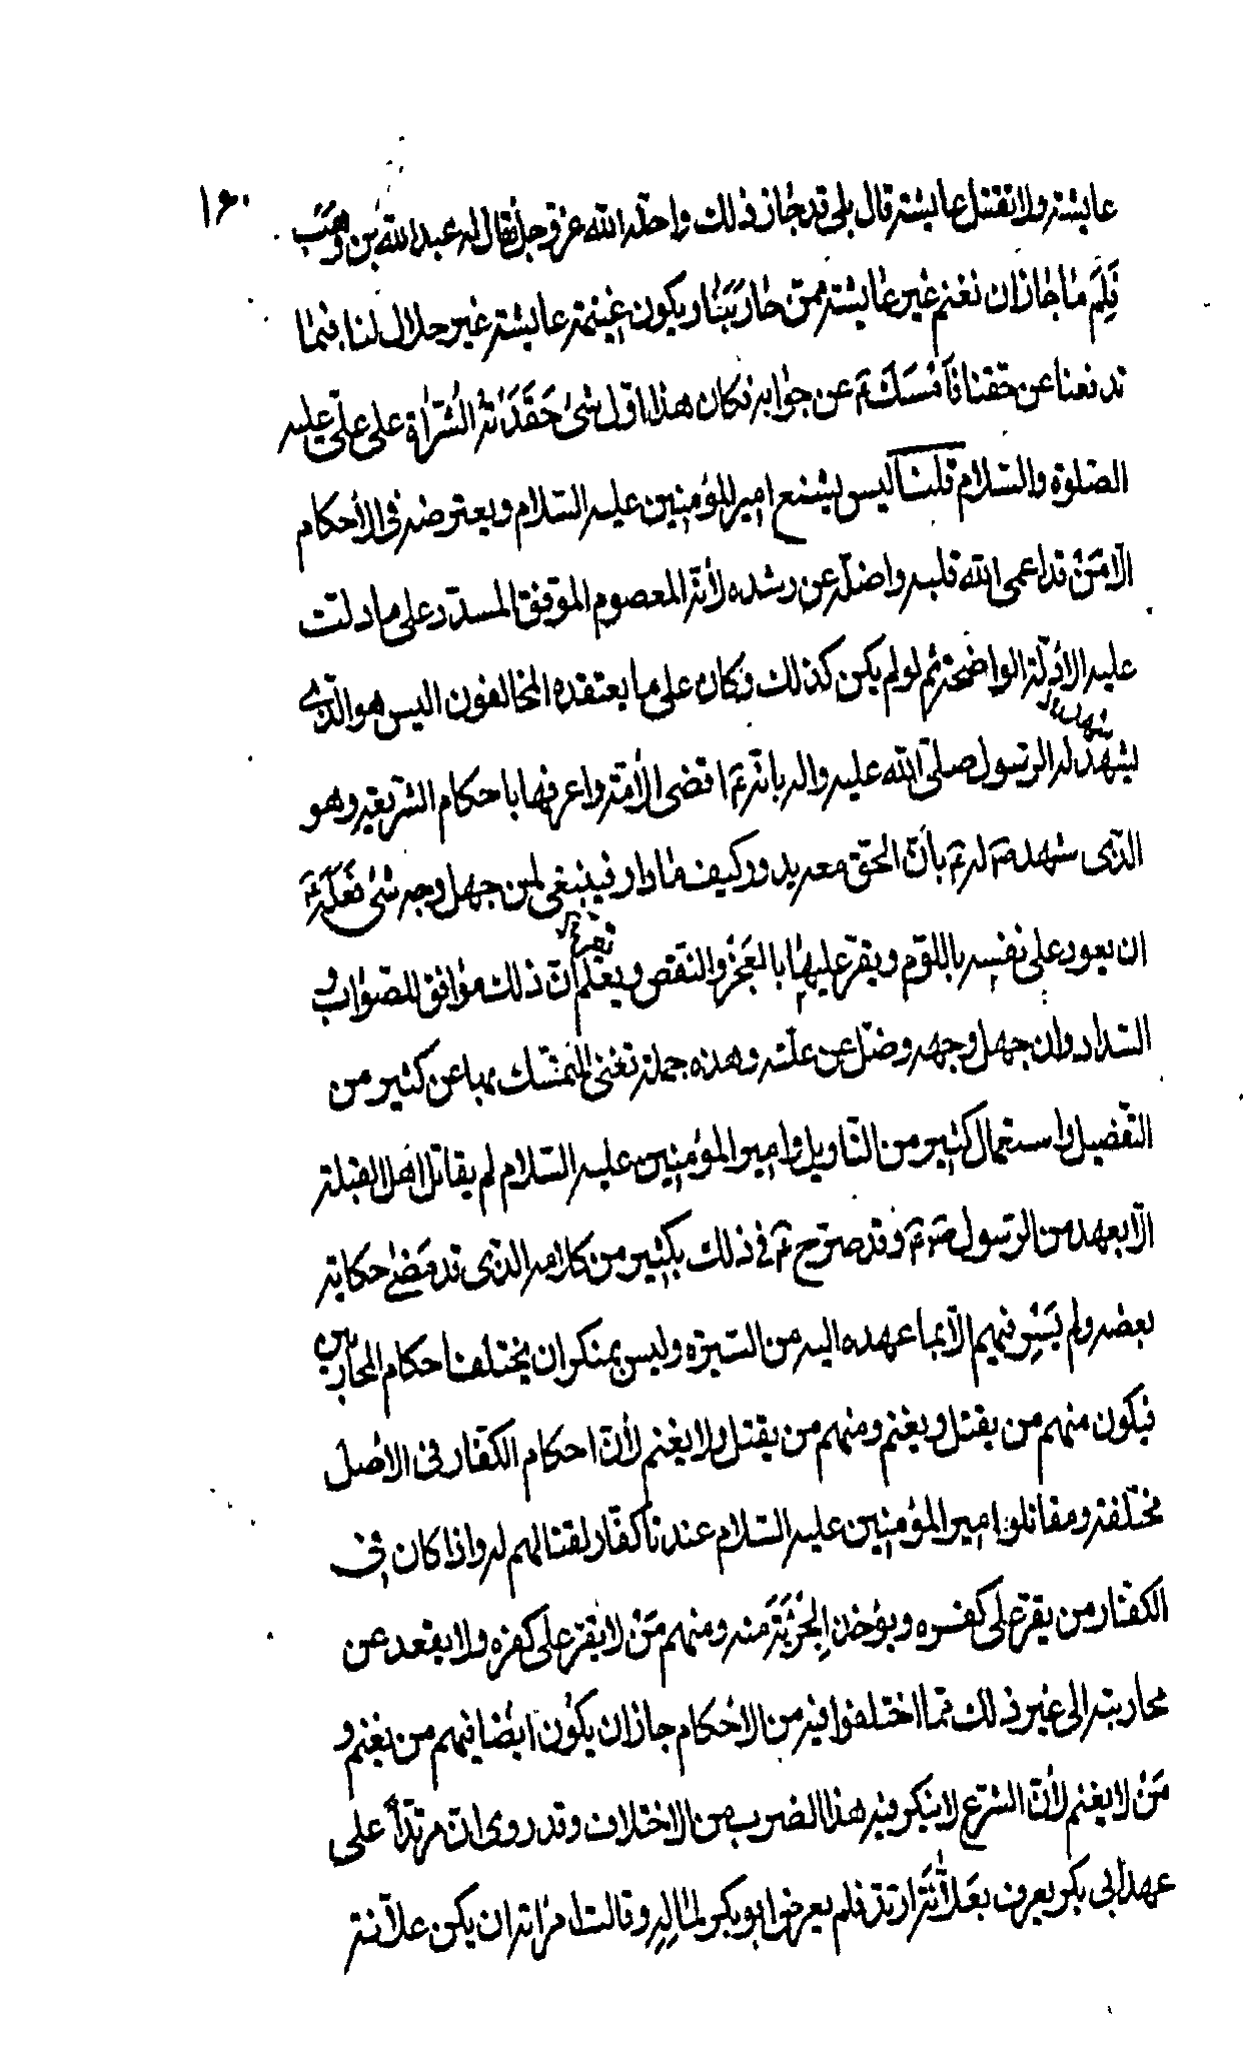 ١٦٠
عايشة ولا تقتل عايشة قال بلى قد جاز ذلك واحله الله عز وجل فقال له عبد الله بن وهب
فَلِمَ ما جاز ان نغنم غير عايشة ممن حاربنا ويكون غنيمة عايشة غير حلال لنا فيما
تدفعنا عن حقنا فاَمْسَكَ ع عن جوابه فكان هذا اول شئ حَقَدَتْهُ الشُراة على علىّ عليه
الصلوة والسّلام قلنا ليس يشنع امير المؤمنين عليه السّلام ويعترضه فى الأحكام
الّا مَنْ قد اعمى الله قلبه واضلّه عن رشده لأنّه المعصوم الموفق المسدّد على ما دلت
عليه الادلّة الواضحة ثم لو لم يكن كذلك وكان على ما يعتقده المخالفون اليس هو الّذى
شهد
يشهد له الرّسول صلى الله عليه واله بانّه ع اقضى الأمّة واعرفها باحكام الشّريعة وهو
الذّى شهد ص له ع بانّ الحقّ معه يدور كيف ما دار فينبغى لمن جهل وجه شئ فَعَلَهُ ع
ان يعود على نفسه باللوّم ويقرّ عليها بالعَجز والنقص ويعلم انّ ذلك موافق للصّواب و
السّداد وان جهل وجهه وضلّ عن علّته وهذه جملة تغنى المتمسّك بها عن كثير من
التّفصيل واستعمال كثير من التّأويل وامير المؤمنين عليه السّلام لم يقاتل اهل القبلة
الّا بعهد من الرّسول ص وقد صرّح ع فى ذلك بكثير من كلامه الذّى قد مَضى حكاية
بعضه ولم يَسِر فيهم الّا بما عهده اليه من السّيرة وليس بمنكر ان يختلف احكام المحاربين
فيكون منهم من يقتل ويغنم ومنهم من يقتل ولا يغنم لأنّ احكام الكفّار فى الأصل
مختلفة ومقاتلوا امير المؤمنين عليه السّلام عندنا كفّار لقتالهم له واذا كان فى
الكفّار من يقرّ على كفره ويؤخذ الِجزْيَة منه ومنهم مَنْ لا يقرّ على كفره ولا يقعد عن
محاربته الى غير ذلك ممّا اختلفوا فيه من الأحكام جاز ان يكون ايضًا فيهم من يغنم و
مَنْ لا يغنم لأنّ الشّرع لا ينكر فيه هذا الضرب من الاختلاف وقد روى انّ مرتدًّا على
عهد ابى بكر يعرف بعَلاثَة ارتدّ فلم يعرض ابو بكر لمالِهِ وقالت امرأته ان يكن علاثة